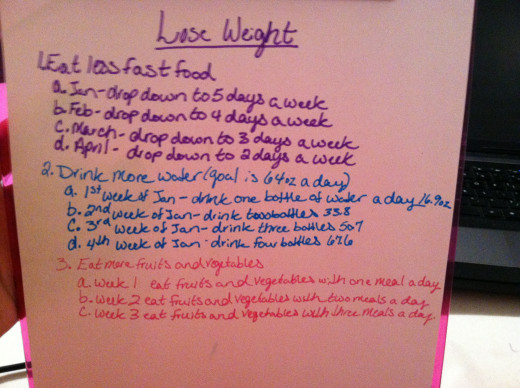 Lose Weight
1. Eat less fast food
a. Jan- drop down to 5 days a week
b. Feb- drop down to 4 days a week
c. March- drop down to 3 days a week
d. April- drop down to 2 days a week
2. Drink more water (goal is 64oz a day)
a. 1st week of Jan- drink one bottle of water a day 16.9oz
b. 2nd week of Jan- drink two bottles 33.8
c. 3rd week of Jan- drink three bottles 50.7
d. 4th week of Jan- drink four bottles 67.6
3. Eat more fruits and vegetables
a. week 1 eat fruits and vegetables with one meal a day
b. week 2 eat fruits and vegetables with two meals a day
c. week 3 eat fruits and vegetables with three meals a day